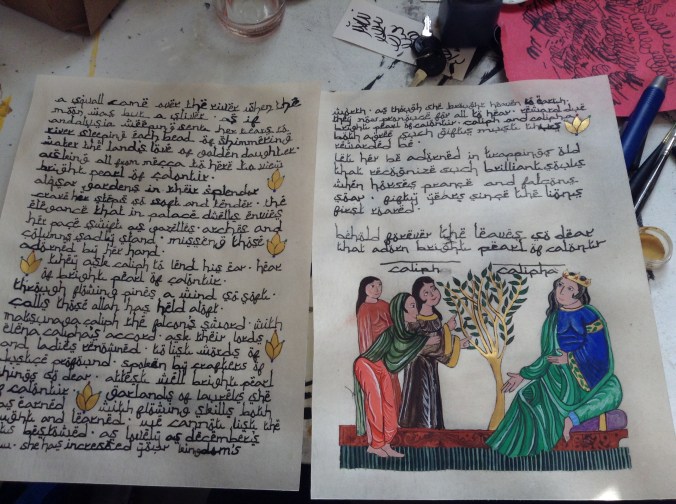 a squall came over the river when the
moon was but a sliver · as if
andalusia weeping sent her tears to
river sleeping each bead of shimmering
water the lands love of golden daughter ·
asking all from mecca to here to view
bright pearl of calontir ·
alcsar gardens in their splendor
crave her steps so soft and tender · the
elegance that in palace dwells envies
her pace swift as gazelles · arches and
columns sadly stand · missing those
adorned by her hand ·
they ask caliph to lend his ear · hear
of bright pearl of calontir ·
through flowing pines a wind so soft ·
calls those allah has held aloft ·
matsunaga caliph the falcon's sword · with
elena calipha's accord · ask their lords
and ladies renowned · to list words of
justice profound · spoken by crafters of
things so dear · attest well bright pearl
of calontir · garlands of laurels she
as earned with flowing skills both
ught and learned · we cannot list the
ts bestowed · as lovely as december's
w · she has increased your kingdom's
worth · as though she brought heaven to earth ·
they now pronounce for all to hear · reward due
bright pearl of calontir · caliph and calipha
both agree such gifts must
rewarded be ·
let her be adorned in trappings old
that recognize such brilliant souls
when horses prance and falcons
soar · fifty years since the lions
first roared ·
behold forever the leaves so dear
that adorn bright pearl of calontir
caliph calipha